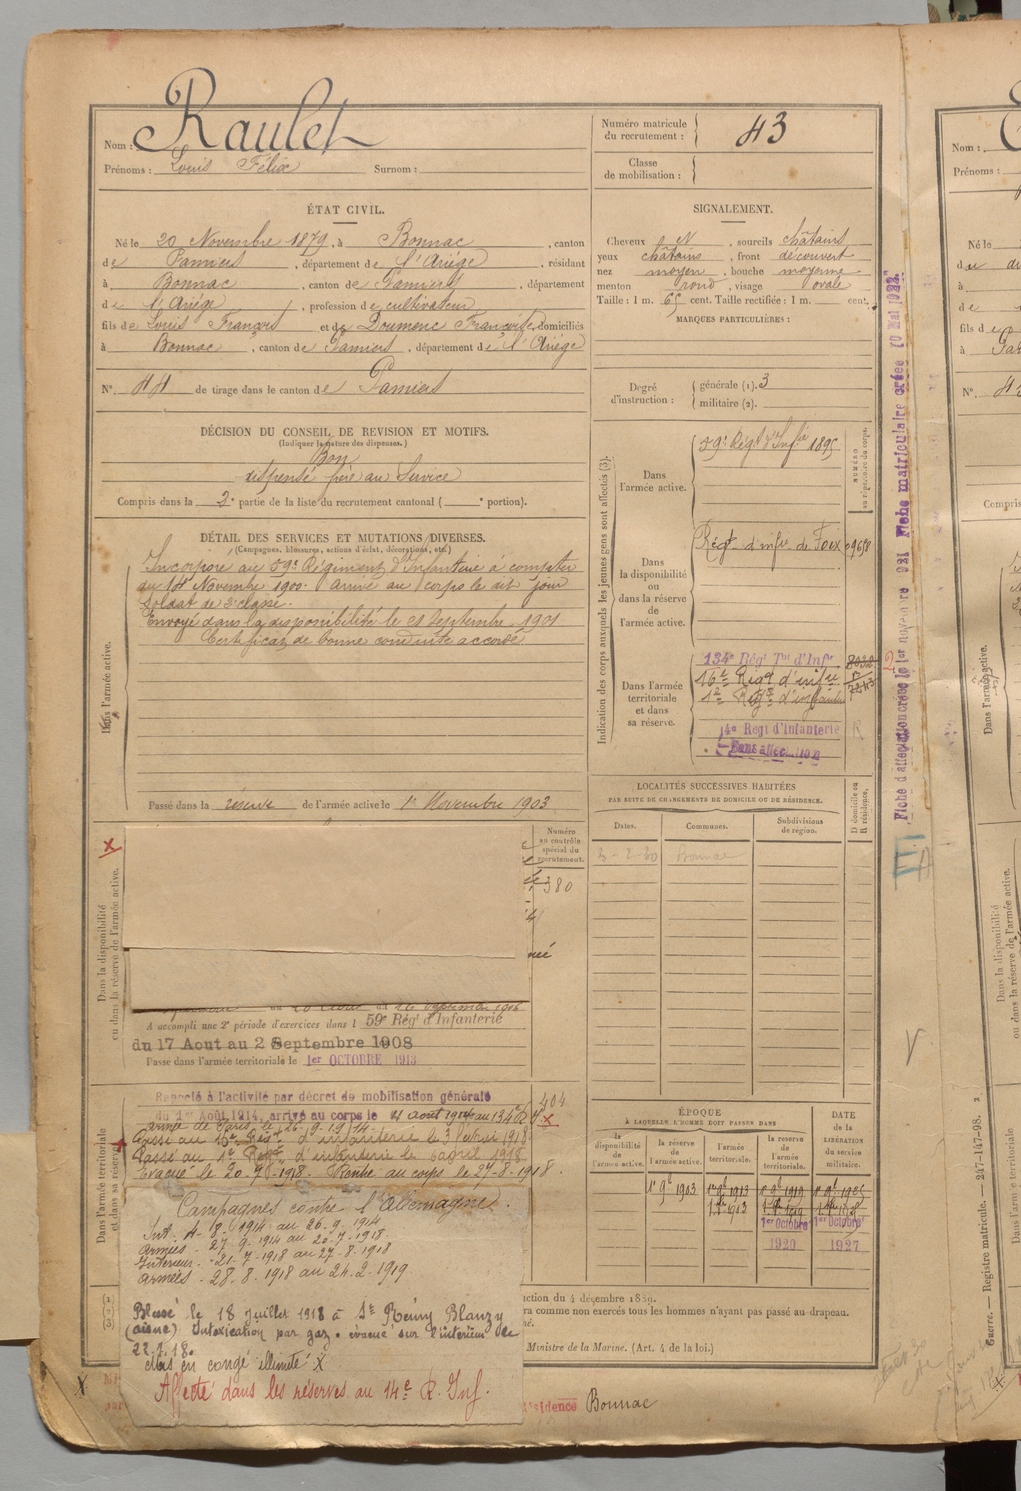 Nom : Raulet
Prénoms : Louis Félix Surnom :
Numéro matricule du recrutement : 43
Classe de mobilisation :
ÉTAT CIVIL.
Né le 20 Novembre 1879, à Bonnac, canton
de Pamiers, département de l'Ariège, résidant
à Bonnac, canton de Pamiers, département
de l'Ariège, profession de cultivateur
fils de Louis François et de Doumenc Françoise, domiciliés
à Bonnac, canton de Pamiers, département de l'Ariège
N° 44 de tirage dans le canton de Pamiers
SIGNALEMENT.
Cheveux N, sourcils châtains
yeux châtains, front découvert
nez moyen, bouche moyenne
menton rond, visage ovale
Taille : 1 m. 65 cent. Taille rectifiée : 1 m. cent.
MARQUES PARTICULIÈRES :
Degré d'instruction : générale (1). 3
militaire (2).
DÉCISION DU CONSEIL DE REVISION ET MOTIFS.
(Indiquer la nature des dispenses.)
Bon
dispensé frère au Service
Compris dans la 2e partie de la liste du recrutement cantonal ( e portion).
DÉTAIL DES SERVICES ET MUTATIONS DIVERSES.
(Campagnes, blessures, actions d'éclat, décorations, etc.)
Dans l'armée active.
Incorporé au 59e Régiment d'Infanterie à compter
du 14 Novembre 1900 arrivé au corps le dit jour
Soldat de 2e classe.
Envoyé dans la disponibilité le 21 Septembre 1901
Certificat de bonne conduite accordé
Passé dans la réserve de l'armée active le 1er Novembre 1903
Indication des corps auxquels les jeunes gens sont affectés (3).
NUMÉRO au répertoire du corps.
Dans l'armée active.
59e Régt d'Infie 1895
Dans la disponibilité ou dans la réserve de l'armée active.
Régt d'infie de Foix 09658
Dans l'armée territoriale et dans sa réserve.
134e Régt Tal d'Infie
16e Régt d'infie
1er Régt d'infanterie
14e Régt d'Infanterie
Sans affec.
LOCALITÉS SUCCESSIVES HABITÉES
PAR SUITE DE CHANGEMENTS DE DOMICILE OU DE RÉSIDENCE.
D domicile ou R résidence.
Dates. Communes. Subdivisions de région.
3-2-30 Bonnac
Dans la disponibilité ou dans la réserve de l'armée active.
Numéro au contrôle spécial du recrutement.
380
A accompli une 2e période d'exercices dans l 59e Régt d'Infanterie
du 17 Aout au 2 Septembre 1908
Passé dans l'armée territoriale le 1er OCTOBRE 1913
Dans l'armée territoriale et dans sa réserve
Rappelé à l'activité par décret de mobilisation générale
du 1er Août 1914, arrivé au corps le 4 août 1914 au 134e
armée de Paris, le 26-9-1914
Passé au 16e Régt d'infanterie le 3 février 1918
Passé au 1er Régt d'infanterie le 6 avril 1918
Evacué le 20-7-1918. Rentré au corps le 27-8-1918.
404
Campagnes contre l'Allemagne.
Int. 4-8-1914 au 26.9.1914
armées - 27-9-1914 au 20-7-1918
Interieur - 21-7-1918 au 27-8-1918
armées - 28-8-1918 au 24-2-1919
Blessé le 18 Juillet 1918 à St Rémy Blanzy
(aisne) Intoxication par gaz. évacué sur l'intérieur le
22.7.18.
Mis en congé illimité X
Affecté dans les réserves au 14e R. Inf.
ÉPOQUE
À LAQUELLE L'HOMME DOIT PASSER DANS
la disponibilité de l'armée active.
la réserve de l'armée active.
l'armée territoriale.
la réserve de l'armée territoriale.
DATE de la LIBÉRATION du service militaire.
1er 9bre 1903 1er 9bre 1913 1er 9bre 1919 1er 9bre 1925
1er Octobre 1920
1er Octobre 1927
ction du 4 décembre 1889.
ra comme non exercés tous les hommes n'ayant pas passé au drapeau.
Ministre de la Marine. (Art. 4 de la loi.)
Résidence Bonnac
Fiche d'affectation créée le 1er novembre 921 Fiche matriculaire créée 10 Mai 1922
Guerre. — Registre matricule. — 247-147-98.